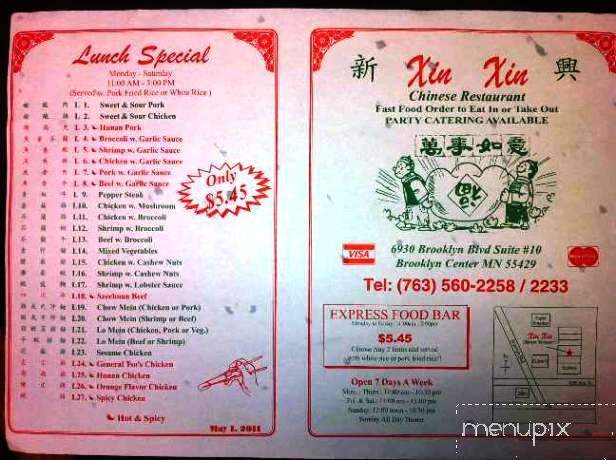 Lunch Special
Monday - Saturday
11:00 AM - 3:00 PM
(Served w. Pork Fried Rice or White Rice)
L 1. Sweet & Sour Pork
L 2. Sweet & Sour Chicken
L 3. Hunan Pork
L 4. Broccoli w. Garlic Sauce
L 5. Shrimp w. Garlic Sauce
L 6. Chicken w. Garlic Sauce
L 7. Pork w. Garlic Sauce
L 8. Beef w. Garlic Sauce
L 9. Pepper Steak
L10. Chicken w. Mushroom
L11. Chicken w. Broccoli
L12. Shrimp w. Broccoli
L13. Beef w. Broccoli
L14. Mixed Vegetables
L15. Chicken w. Cashew Nuts
L16. Shrimp w. Cashew Nuts
L17. Shrimp w. Lobster Sauce
L18. Szechuan Beef
L19. Chow Mein (Chicken or Pork)
L20. Chow Mein (Shrimp or Beef)
L21. Lo Mein (Chicken, Pork or Veg.)
L22. Lo Mein (Beef or Shrimp)
L23. Sesame Chicken
L24. General Tso's Chicken
L25. Hunan Chicken
L26. Orange Flavor Chicken
L27. Spicy Chicken
Hot & Spicy
May 1. 2011
Only
$5.45
新 Xin Xin 興
Chinese Restaurant
Fast Food Order to Eat in or Take Out
PARTY CATERING AVAILABLE
萬事如意
VISA
6930 Brooklyn Blvd Suite #10
Brooklyn Center MN 55429
Tel: (763) 560-2258 / 2233
EXPRESS FOOD BAR
$5.45
Choose Any 2 Items and served
with white rice or pork fried rice!!
Open 7 Days A Week
Mon. - Thurs.: 11:00 am - 10:30 pm
Fri. & Sat.: 11:00 am - 11:00 pm
Sunday: 12:00 noon - 10:30 pm
Sunday All Day Dinner
Xin Xin
menupix